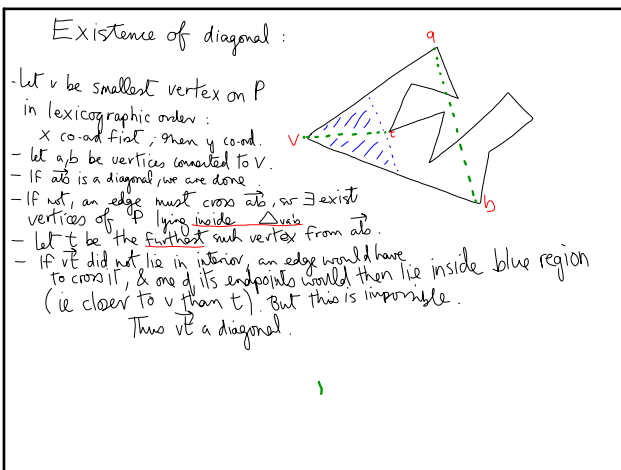 Existence of diagonal :
- Let v be smallest vertex on P
in lexicographic order :
x co-ord first, then y co-ord.
- let a,b be vertices connected to v.
- If ab is a diagonal, we are done.
- If not, an edge must cross ab, so ∃ exist
vertices of P lying inside △vab
- Let t be the furthest such vertex from ab.
- If vt did not lie in interior, an edge would have
to cross it, & one of its endpoints would then lie inside blue region
(ie closer to v than t). But this is impossible.
Thus vt a diagonal.
a
v
t
b